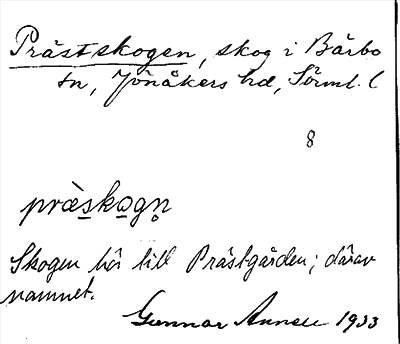 Prästskogen, skog i Bärbo
sn, Jönåkers hd, Sörml. l
8
præ̀skogn̥
Skogen hör till Prästgården; därav
namnet.
Gunnar 1933